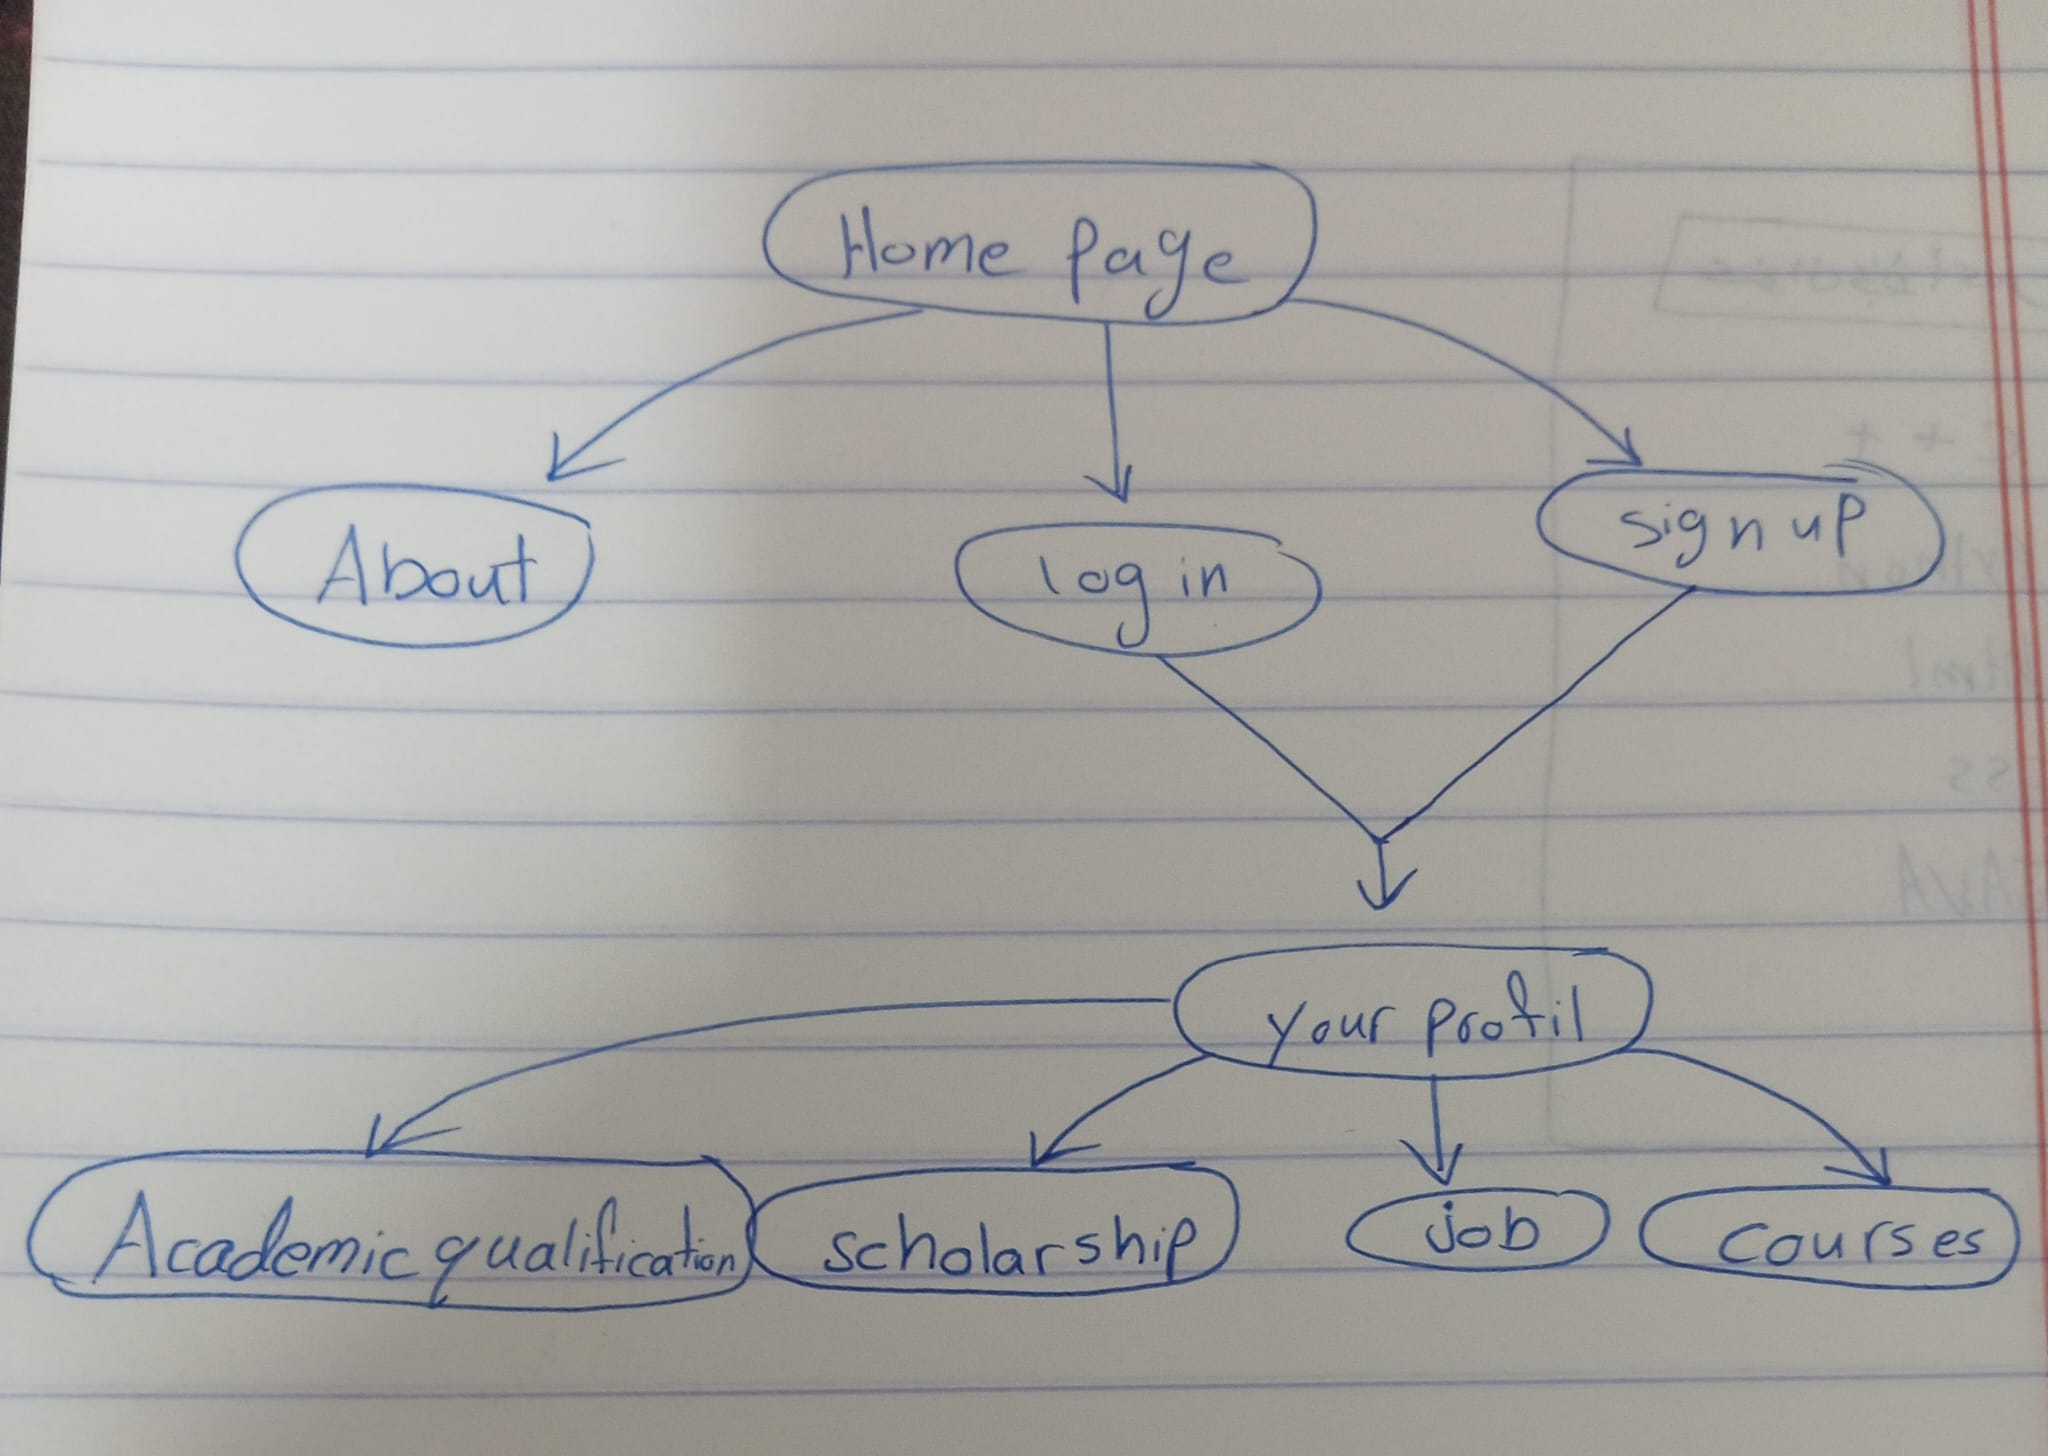 Home Page
About
log in
sign up
your profil
Academic qualification
scholarship
job
courses